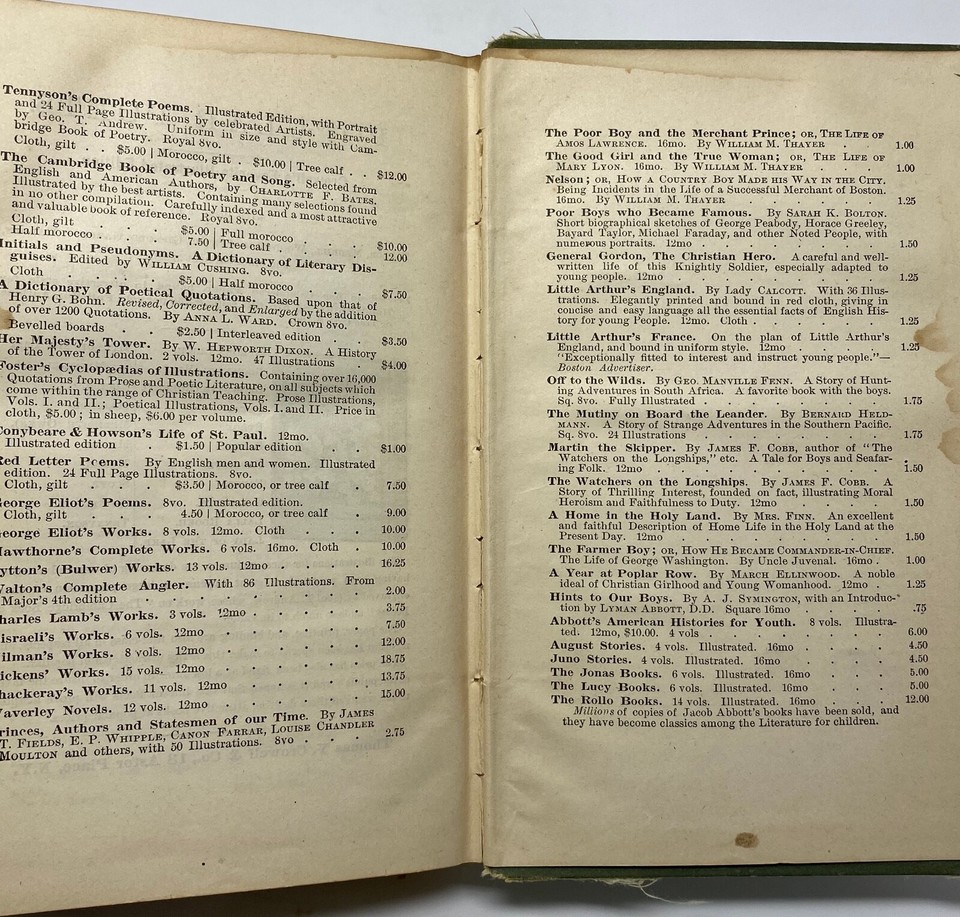 Tennyson's Complete Poems. Illustrated Edition, with Portrait
and 24 Full Page Illustrations by celebrated Artists. Engraved
by Geo. T. Andrew. Uniform in size and style with Cam-
bridge Book of Poetry. Royal 8vo.
Cloth, gilt . . $5.00 | Morocco, gilt . $10.00 | Tree calf . . $12.00
The Cambridge Book of Poetry and Song. Selected from
English and American Authors, by CHARLOTTE F. BATES.
Illustrated by the best artists. Containing many selections found
in no other compilation. Carefully indexed and a most attractive
and valuable book of reference. Royal 8vo.
Cloth, gilt . . . $5.00 | Full morocco . . . $10.00
Half morocco . . . 7.50 | Tree calf . . . 12.00
Initials and Pseudonyms. A Dictionary of Literary Dis-
guises. Edited by WILLIAM CUSHING. 8vo.
Cloth . . . $5.00 | Half morocco . . . $7.50
A Dictionary of Poetical Quotations. Based upon that of
Henry G. Bohn. Revised, Corrected, and Enlarged by the addition
of over 1200 Quotations. By ANNA L. WARD. Crown 8vo.
Bevelled boards . . $2.50 | Interleaved edition . . $3.50
Her Majesty's Tower. By W. HEPWORTH DIXON. A History
of the Tower of London. 2 vols. 12mo. 47 Illustrations . $4.00
Foster's Cyclopædias of Illustrations. Containing over 16,000
Quotations from Prose and Poetic Literature, on all subjects which
come within the range of Christian Teaching. Prose Illustrations,
Vols. I. and II.; Poetical Illustrations, Vols. I. and II. Price in
cloth, $5.00; in sheep, $6.00 per volume.
Conybeare & Howson's Life of St. Paul. 12mo.
Illustrated edition . $1.50 | Popular edition . . $1.00
Red Letter Poems. By English men and women. Illustrated
edition. 24 Full Page Illustrations. 8vo.
Cloth, gilt . . . $3.50 | Morocco, or tree calf . 7.50
George Eliot's Poems. 8vo. Illustrated edition.
Cloth, gilt . . . 4.50 | Morocco, or tree calf . 9.00
George Eliot's Works. 8 vols. 12mo. Cloth . . . 10.00
Hawthorne's Complete Works. 6 vols. 16mo. Cloth . 10.00
ytton's (Bulwer) Works. 13 vols. 12mo . . . . 16.25
Walton's Complete Angler. With 86 Illustrations. From
Major's 4th edition . . . . . . . 2.00
harles Lamb's Works. 3 vols. 12mo . . . . . 3.75
israeli's Works. 6 vols. 12mo . . . . . . 7.50
ilman's Works. 8 vols. 12mo . . . . . . 12.00
ickens' Works. 15 vols. 12mo . . . . . . 18.75
hackeray's Works. 11 vols. 12mo . . . . . 13.75
averley Novels. 12 vols. 12mo . . . . . 15.00
rinces, Authors and Statesmen of our Time. By JAMES
T. FIELDS, E. P. WHIPPLE, CANON FARRAR, LOUISE CHANDLER
MOULTON and others, with 50 Illustrations. 8vo . . . 2.75
The Poor Boy and the Merchant Prince; OR, THE LIFE OF
AMOS LAWRENCE. 16mo. By WILLIAM M. THAYER . . 1.00
The Good Girl and the True Woman; OR, THE LIFE OF
MARY LYON. 16mo. By WILLIAM M. THAYER . . . 1.00
Nelson; OR, HOW A COUNTRY BOY MADE HIS WAY IN THE CITY.
Being Incidents in the Life of a Successful Merchant of Boston.
16mo. By WILLIAM M. THAYER . . . . . . 1.25
Poor Boys who Became Famous. By SARAH K. BOLTON.
Short biographical sketches of George Peabody, Horace Greeley,
Bayard Taylor, Michael Faraday, and other Noted People, with
numerous portraits. 12mo . . . . . . . 1.50
General Gordon, The Christian Hero. A careful and well-
written life of this Knightly Soldier, especially adapted to
young people. 12mo . . . . . . . . 1.25
Little Arthur's England. By LADY CALCOTT. With 36 Illus-
trations. Elegantly printed and bound in red cloth, giving in
concise and easy language all the essential facts of English His-
tory for young People. 12mo. Cloth . . . . . . 1.25
Little Arthur's France. On the plan of Little Arthur's
England, and bound in uniform style. 12mo . . . . 1.25
"Exceptionally fitted to interest and instruct young people."—
Boston Advertiser.
Off to the Wilds. By GEO. MANVILLE FENN. A Story of Hunt-
ing Adventures in South Africa. A favorite book with the boys.
Sq. 8vo. Fully Illustrated . . . . . . . 1.75
The Mutiny on Board the Leander. By BERNARD HELD-
MANN. A Story of Strange Adventures in the Southern Pacific.
Sq. 8vo. 24 Illustrations . . . . . . . 1.75
Martin the Skipper. By JAMES F. COBB, author of "The
Watchers on the Longships," etc. A Tale for Boys and Seafar-
ing Folk. 12mo . . . . . . . . . 1.50
The Watchers on the Longships. By JAMES F. COBB. A
Story of Thrilling Interest, founded on fact, illustrating Moral
Heroism and Faithfulness to Duty. 12mo . . . . 1.50
A Home in the Holy Land. By MRS. FINN. An excellent
and faithful Description of Home Life in the Holy Land at the
Present Day. 12mo . . . . . . . . 1.50
The Farmer Boy; OR, HOW HE BECAME COMMANDER-IN-CHIEF.
The Life of George Washington. By Uncle Juvenal. 16mo . 1.00
A Year at Poplar Row. By MARCH ELLINWOOD. A noble
ideal of Christian Girlhood and Young Womanhood. 12mo . 1.25
Hints to Our Boys. By A. J. SYMINGTON, with an Introduc-
tion by LYMAN ABBOTT, D.D. Square 16mo . . . . .75
Abbott's American Histories for Youth. 8 vols. Illustra-
ted. 12mo, $10.00. 4 vols . . . . . . . 6.00
August Stories. 4 vols. Illustrated. 16mo . . . . 4.50
Juno Stories. 4 vols. Illustrated. 16mo . . . . 4.50
The Jonas Books. 6 vols. Illustrated. 16mo . . . . 5.00
The Lucy Books. 6 vols. Illustrated. 16mo . . . . 5.00
The Rollo Books. 14 vols. Illustrated. 16mo . . . . 12.00
Millions of copies of Jacob Abbott's books have been sold, and
they have become classics among the Literature for children.